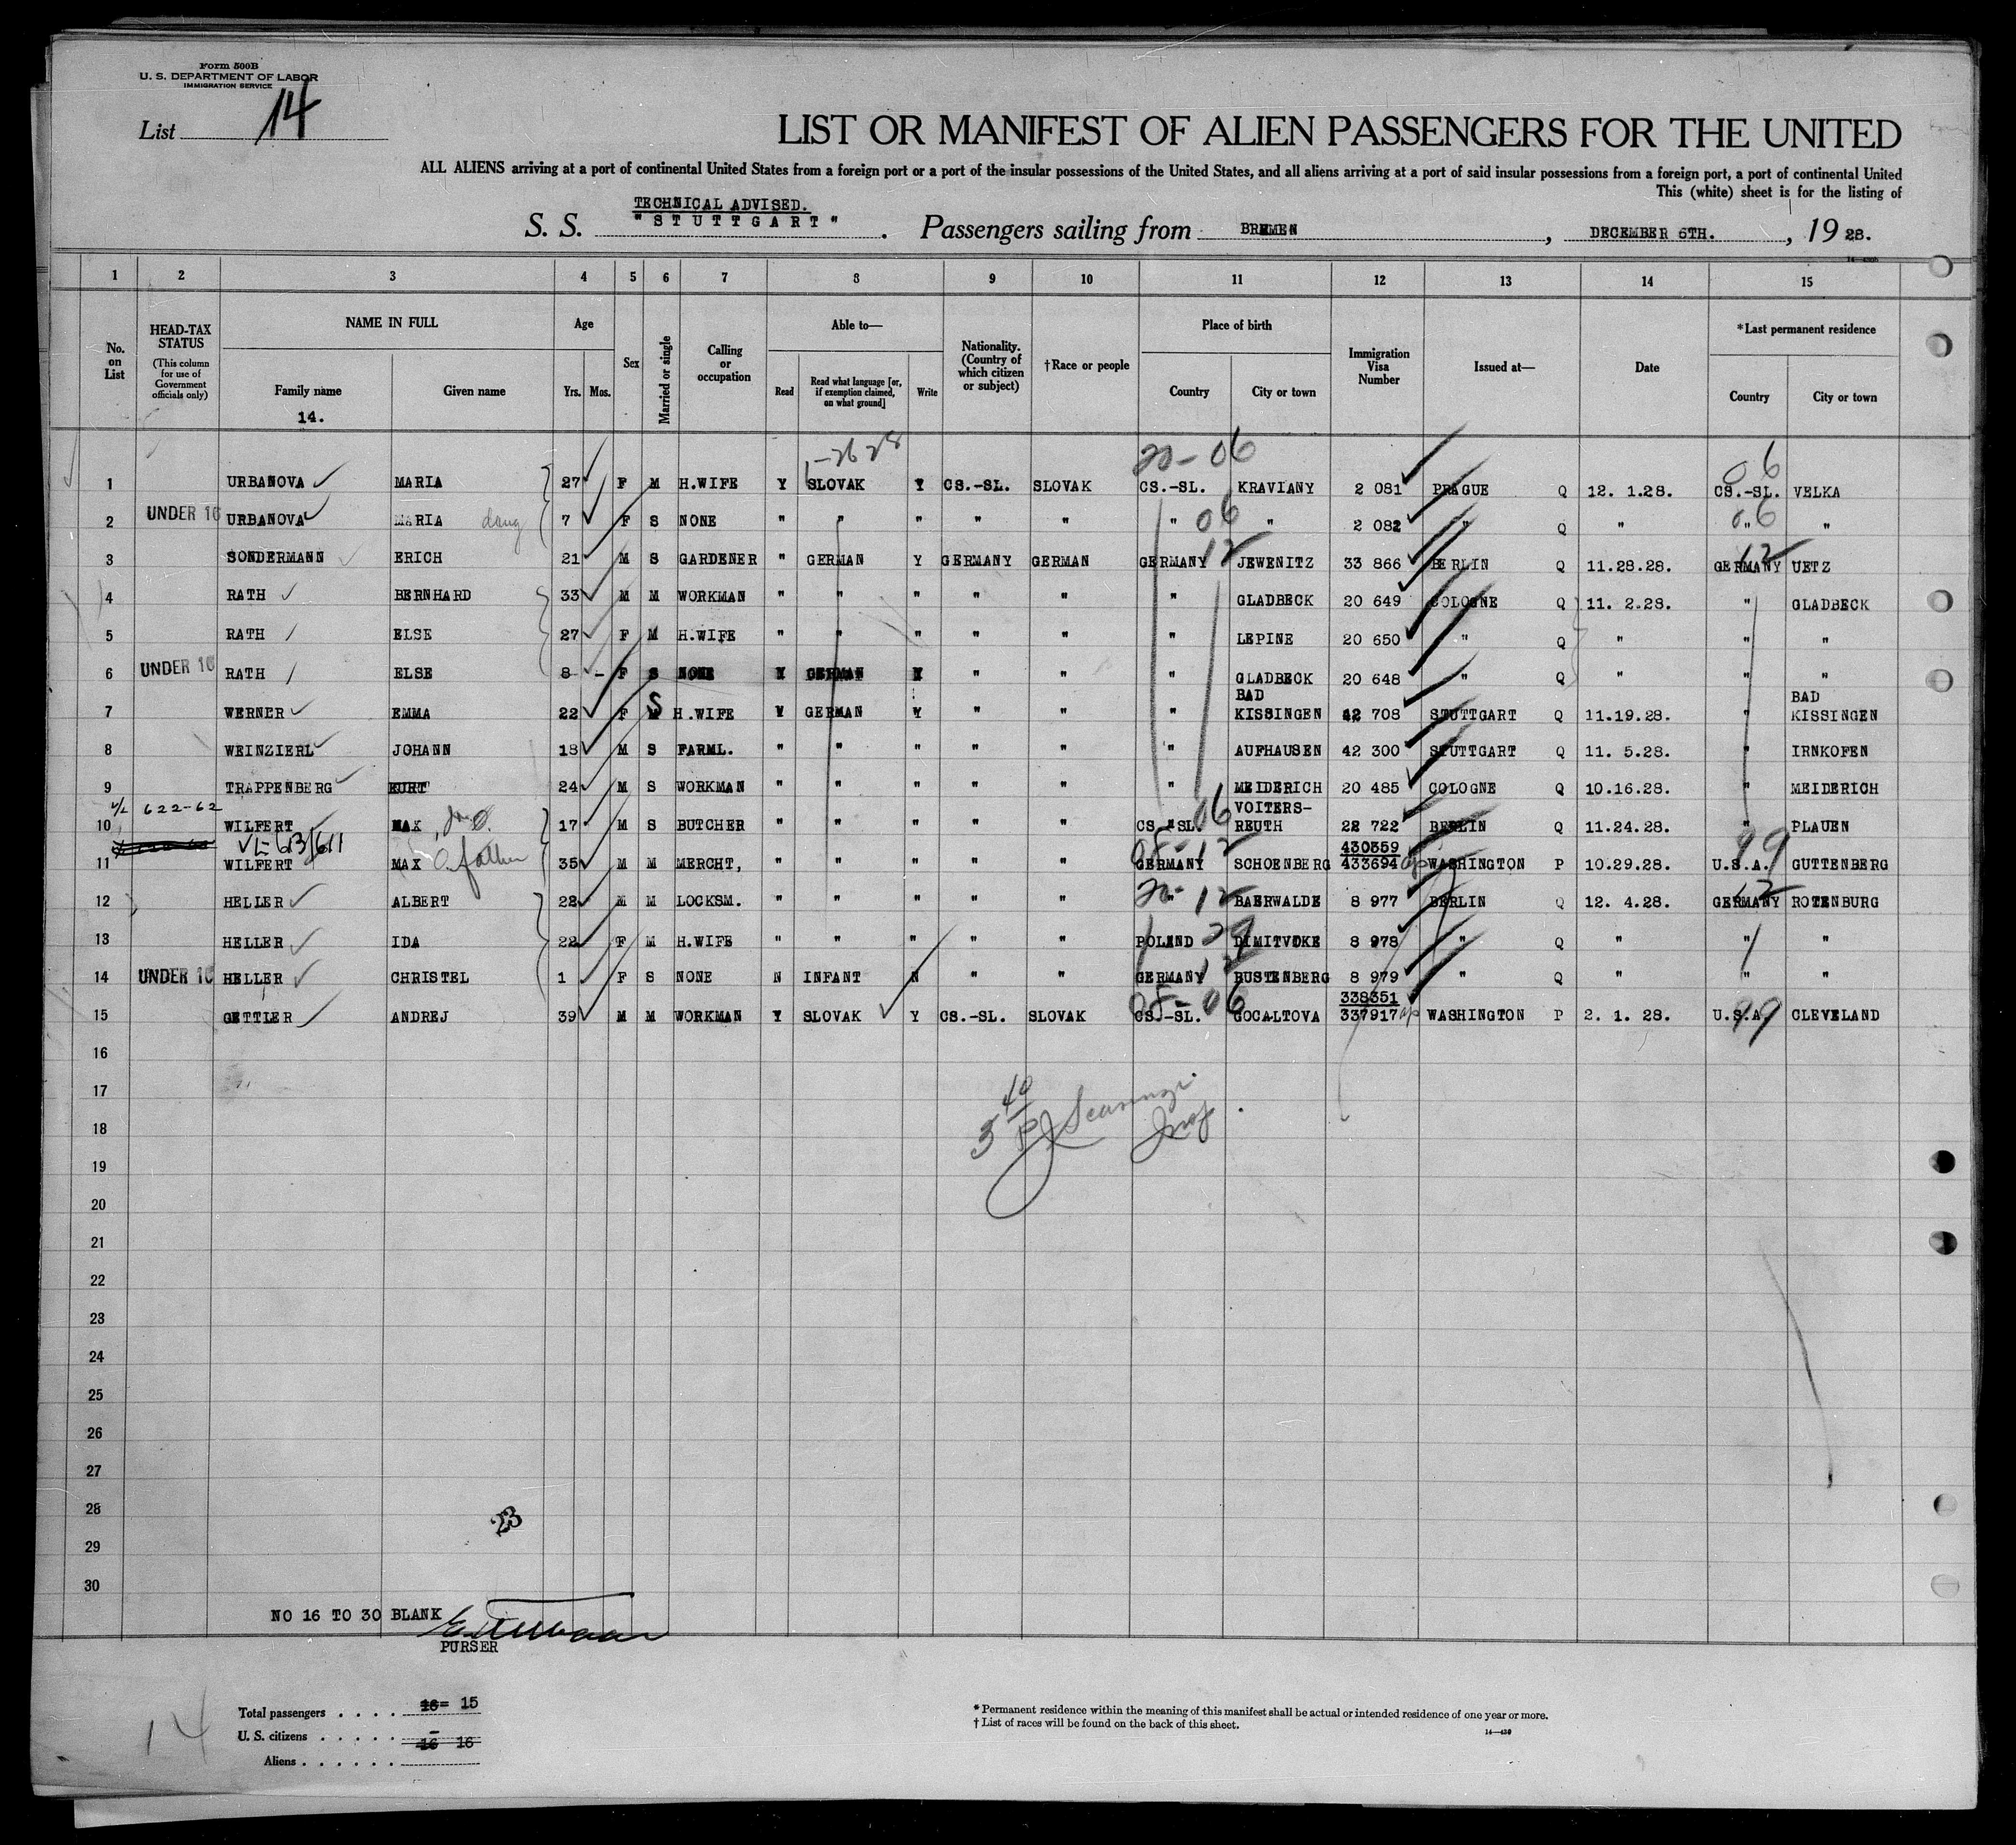 Form 500B
U. S. DEPARTMENT OF LABOR
IMMIGRATION SERVICE
List 14
LIST OR MANIFEST OF ALIEN PASSENGERS FOR THE UNITED
ALL ALIENS arriving at a port of continental United States from a foreign port or a port of the insular possessions of the United States, and all aliens arriving at a port of said insular possessions from a foreign port, a port of continental United
This (white) sheet is for the listing of
TECHNICAL ADVISED.
S. S. "STUTTGART". Passengers sailing from BREMEN, DECEMBER 6TH., 1928.
1 2 3 4 5 6 7 8 9 10 11 12 13 14 15
No. on List
HEAD-TAX STATUS
(This column for use of Government officials only)
NAME IN FULL
Family name
14.
Given name
Age
Yrs. Mos.
Sex
Married or single
Calling or occupation
Able to—
Read
Read what language [or, if exemption claimed, on what ground]
Write
Nationality. (Country of which citizen or subject)
†Race or people
Place of birth
Country
City or town
Immigration Visa Number
Issued at—
Date
*Last permanent residence
Country
City or town
20-06 06
1 URBANOVA MARIA 27 F M H.WIFE Y SLOVAK Y CS.-SL. SLOVAK CS.-SL. KRAVIANY 2 081 PRAGUE Q 12. 1.28. CS.-SL. VELKA
2 UNDER 16 URBANOVA MARIA daug 7 F S NONE " " " " " " 06 " 2 082 " Q " " 06 "
3 SONDERMANN ERICH 21 M S GARDENER " GERMAN Y GERMANY GERMAN GERMANY 12 JEWENITZ 33 866 BERLIN Q 11.28.28. GERMANY 12 UETZ
4 RATH BERNHARD 33 M M WORKMAN " " " " " " GLADBECK 20 649 COLOGNE Q 11. 2.28. " GLADBECK
5 RATH ELSE 27 F M H.WIFE " " " " " " LEPINE 20 650 " Q " " "
6 UNDER 16 RATH ELSE 8 - F S NONE GERMAN " " " GLADBECK 20 648 " Q " " "
7 WERNER EMMA 22 F S H.WIFE Y GERMAN Y " " " BAD KISSINGEN 42 708 STUTTGART Q 11.19.28. " BAD KISSINGEN
8 WEINZIERL JOHANN 18 M S FARML. " " " " " " AUFHAUSEN 42 300 STUTTGART Q 11. 5.28. " IRNKOFEN
9 TRAPPENBERG KURT 24 M S WORKMAN " " " " " " MEIDERICH 20 485 COLOGNE Q 10.16.28. " MEIDERICH
622-62
10 WILFERT MAX 17 M S BUTCHER " " " " " CS.-SL. 06 VOITERS-REUTH 22 722 BERLIN Q 11.24.28. " PLAUEN
613/611
11 WILFERT MAX father 35 M M MERCHT, " " " " " GERMANY SCHOENBERG 430359 433694 WASHINGTON P 10.29.28. U.S.A. 99 GUTTENBERG
12 HELLER ALBERT 22 M M LOCKSM. " " " " " " 20-12 BAERWALDE 8 977 BERLIN Q 12. 4.28. GERMANY 12 ROTENBURG
13 HELLER IDA 22 F M H.WIFE " " " " " POLAND 29 DIMITVOKE 8 978 " Q " " "
14 UNDER 16 HELLER CHRISTEL 1 F S NONE N INFANT N " " GERMANY 12 BUSTENBERG 8 979 " Q " " "
15 GETTLER ANDREJ 39 M M WORKMAN Y SLOVAK Y CS.-SL. SLOVAK CS.-SL. 06 GOCALTOVA 338351 337917 WASHINGTON P 2. 1. 28. U.S.A. 99 CLEVELAND
16
17
18
19
20
21
22
23
24
25
26
27
28
29
30
23
NO 16 TO 30 BLANK
PURSER
14
Total passengers . . . . 16= 15
U. S. citizens . . . . . -
Aliens . . . . . . 16 16
*Permanent residence within the meaning of this manifest shall be actual or intended residence of one year or more.
†List of races will be found on the back of this sheet.
14—430